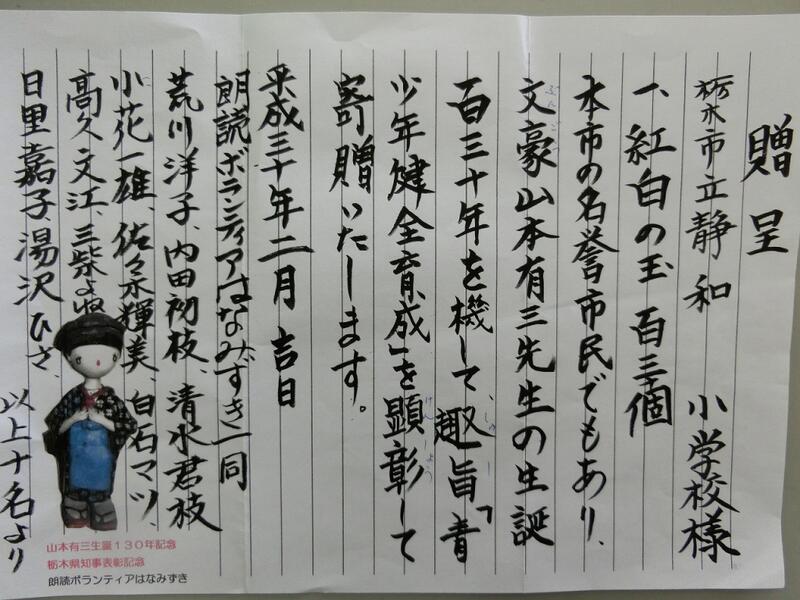 贈呈
栃木市立静和 小学校様
一、紅白の玉 百三個
本市の名誉市民でもあり、
文豪山本有三先生の生誕
ぶんごう
百三十年を機して、趣旨「青
しゅし
少年健全育成」を顕彰して
けんしょう
寄贈いたします。
平成三十年二月吉日
朗読ボランティアはなみずき一同
荒川洋子、内田初枝、清水君枝
小花一雄、佐々木輝美、白石マツ、
高久文江、三柴よ
日里嘉子、湯沢ひさ、
以上十名より
山本有三生誕130年記念
栃木県知事表彰記念
朗読ボランティアはなみずき